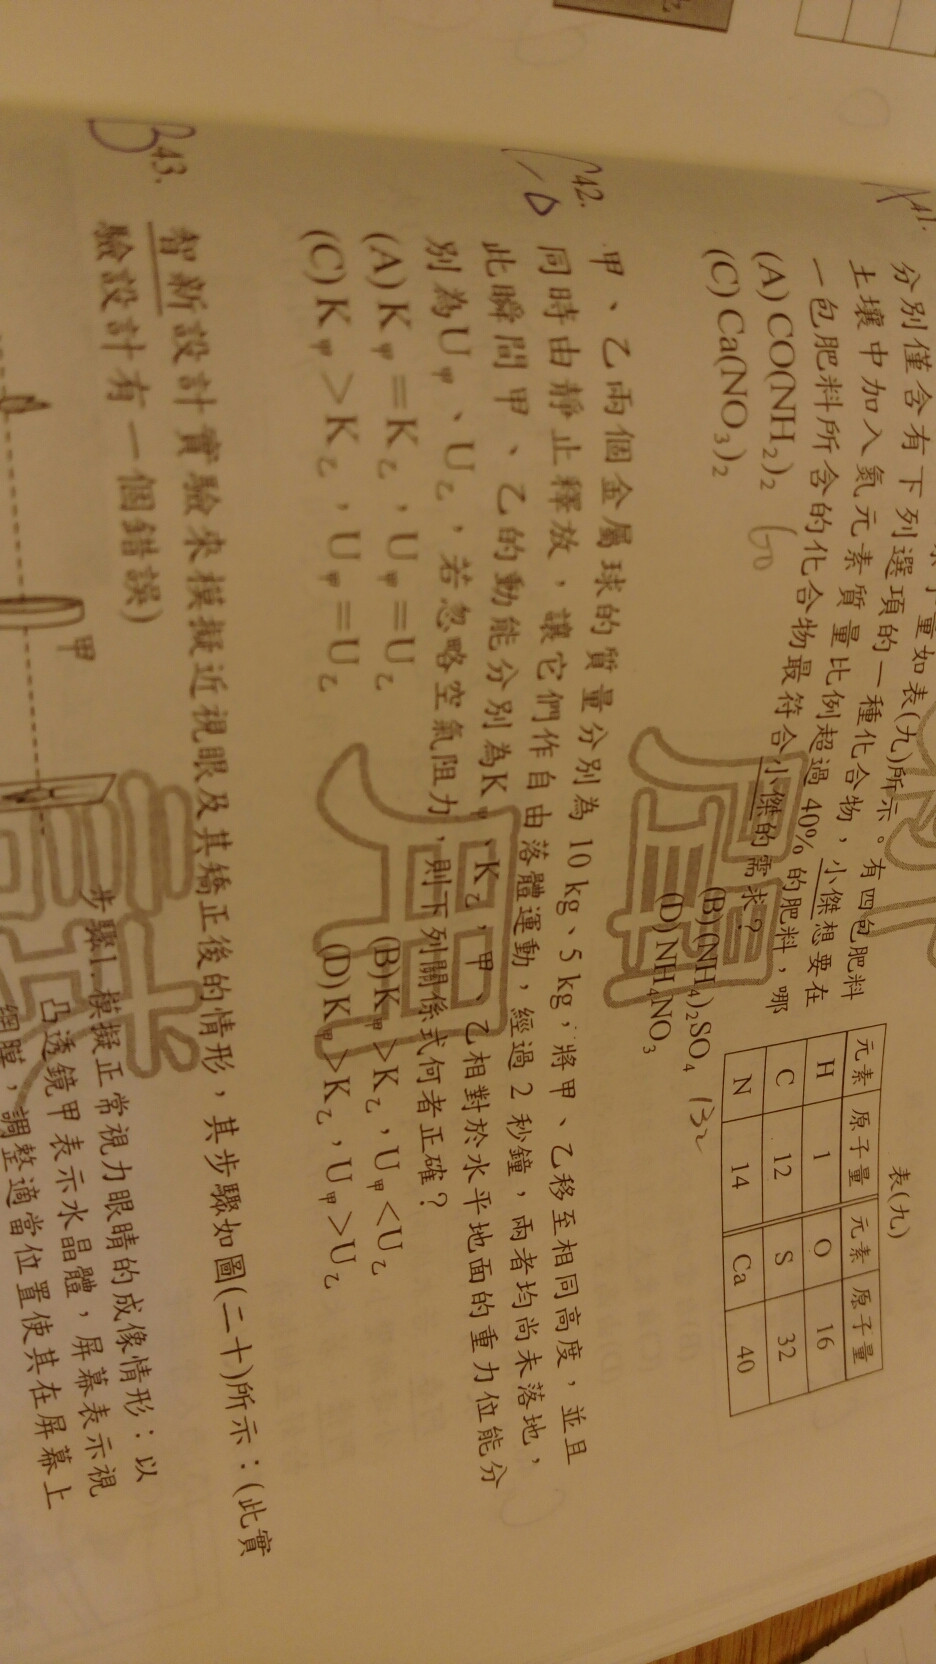 41.
量如表(九)所示。有四包肥料
分別僅含有下列選項的一種化合物，小傑想要在
土壤中加入氮元素質量比例超過 40% 的肥料，哪
一包肥料所含的化合物最符合小傑的需求？
(A) CO(NH₂)₂ 60 (B) (NH₄)₂SO₄ 132
(C) Ca(NO₃)₂ (D) NH₄NO₃
表(九)
元素 原子量 元素 原子量
H 1 O 16
C 12 S 32
N 14 Ca 40
D 42. 甲、乙兩個金屬球的質量分別為 10 kg、5 kg，將甲、乙移至相同高度，並且
同時由靜止釋放，讓它們作自由落體運動，經過 2 秒鐘，兩者均尚未落地，
此瞬間甲、乙的動能分別為K甲、K乙，甲、乙相對於水平地面的重力位能分
別為U甲、U乙，若忽略空氣阻力，則下列關係式何者正確？
(A) K甲＝K乙，U甲＝U乙 (B) K甲＞K乙，U甲＜U乙
(C) K甲＞K乙，U甲＝U乙 (D) K甲＞K乙，U甲＞U乙
B 43. 智新設計實驗來模擬近視眼及其矯正後的情形，其步驟如圖(二十)所示：(此實
驗設計有一個錯誤)
甲
步驟1.模擬正常視力眼睛的成像情形：以
凸透鏡甲表示水晶體，屏幕表示視
網膜，調整適當位置使其在屏幕上